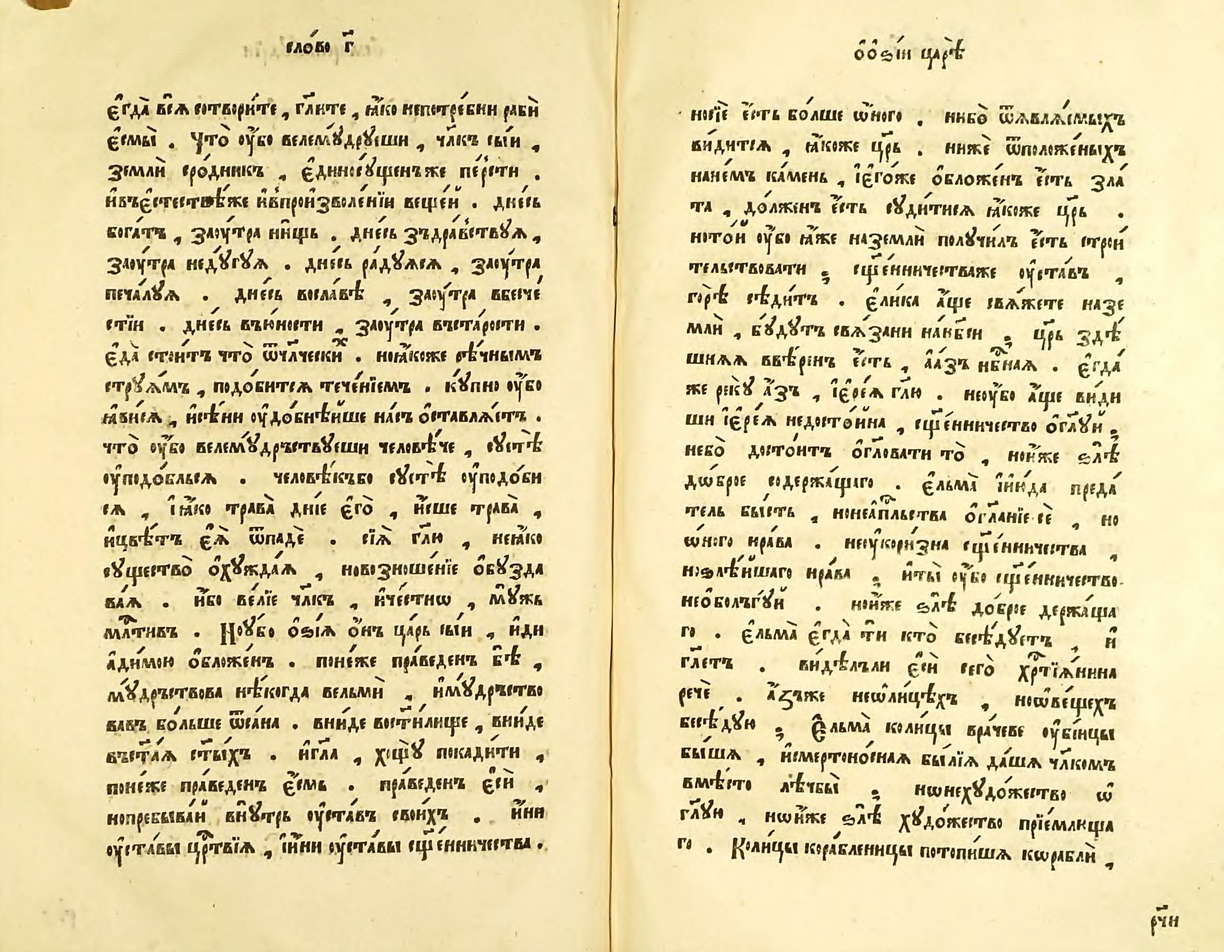 сло́во г҃
є҆гда̀ всѧ̑ сотвори́те , гл҃ите , ꙗ҆́ко непотре́бни рабѝ
є҆смы̀ . Что̀ ᲂу҆́бо велемꙋ́дрꙋеши , чл҃къ сы́и ,
землѝ сро́дникъ , є҆диносꙋ́щенъже пе́рсти .
и҆въє҆стествѣ́же и҆впроизволе́нїи веще́й . дне́сь
бога́тъ , заᲂу́тра ни́щь . дне́сь зъдра́вствꙋѧ ,
заᲂу́тра недꙋ́гꙋѧ . дне́сь ра́дꙋѧсѧ , заᲂу́тра
печа́лꙋѧ . дне́сь восла́вѣ , заᲂу́тра вбесче́
стїи . дне́сь въю́ности , заᲂу́тра въста́рости .
є҆да̀ стои́тъ что̀ ѿчл҃чески́х . ноꙗ҆́коже рѣ́чнымъ
стрꙋѧ́мъ , подо́битсѧ тече́нїемъ . кꙋ́пно ᲂу҆́бо
ꙗ҆ви́сѧ , и҆сѣ́ни ᲂу҆до́бнѣйше на́съ ѡ҆ставлѧ́етъ .
что̀ ᲂу҆́бо велемꙋ́дръствꙋеши человѣ́че , сꙋ́етѣ
ᲂу҆подо́бльсѧ . человѣ́къбо сꙋ́етѣ ᲂу҆подо́би
сѧ , і҆ꙗ҆́ко трава̀ дні́е є҆го̀ , и҆́сше трава̀ ,
и҆цвѣ́тъ є҆ѧ̀ ѿпадѐ . сїѧ̑ гл҃ю , неꙗ҆́ко
сꙋщество̀ ѻ҆хꙋжда́ѧ , новозноше́нїе ѻ҆бꙋзда
ва́ѧ . и҆́бо ве́лїе чл҃къ , и҆че́стно , мꙋ́жь
млⷭ҇тивъ . Ноᲂу́бо ѻ҆ѕі́ѧ ѻ҆́нъ ца́рь сы́и , и҆ди
ади́мою ѻ҆бло́женъ . поне́же пра́веденъ бѣ̀ ,
мꙋ́дръствова нѣ́когда вельмѝ , и҆мꙋ́дръство
вавъ бо́льше ѿса́на . вни́де вости҃лище , вни́де
въста҃ѧ ст҃ы́хъ . и҆гл҃а , хощꙋ̀ покади́ти ,
поне́же пра́веденъ є҆́смь . пра́веденъ є҆сѝ ,
нопребыва́й внꙋ́трь ᲂу҆ста́въ свои́хъ . и҆́ни
ᲂу҆ста́вы црⷭ҇твїѧ , і҆и҆́ни ᲂу҆ста́вы сщ҃е́нничества .
ѻ҆ ѻ҆ѕі́и царѣ̀
носїѐ є҆́сть бо́лше ѻ҆́ного . нибо̀ ѿѧвлѧ́емыхъ
ви́дитсѧ , ꙗ҆́коже цр҃ь . нижѐ ѿположе́ныхъ
нане́мъ ка́мень , і҆є҆го́же ѻ҆бложе́нъ є҆́сть зла́
та , до́лженъ є҆́сть сꙋди́тисѧ ꙗ҆́коже цр҃ь .
ното́й ᲂу҆́бо ꙗ҆́же наземлѝ получи́лъ є҆́сть строи́
тельствовати ; сщ҃е́нничестваже ᲂу҆ста́въ ,
горѣ̀ сѣди́тъ . є҆ли́ка а҆́ще свѧ́жете назе
млѝ , бꙋ́дꙋтъ свѧ́зани нанб҃си ; цр҃ь здѣ́
шнѧѧ ввѣ́ренъ є҆́сть , а҆а҆́зъ нбⷭ҇наѧ . є҆гда́
же рекꙋ̀ а҆́зъ , і҆ере́ѧ гл҃ю . неᲂу́бо а҆́ще ви́ди
ши і҆ере́ѧ недосто́йна , сщ҃е́нничество ѻ҆гл҃ꙋй ;
небо̀ досто́итъ ѻ҆гл҃овати то̀ , но и҆́же ѕлѣ̀
до́брое содержа́щаго . є҆льма̀ і҆и҆ю́да преда́
тель бы́сть , нонеа҆пⷭ҇льства ѻ҆гл҃анїе сѐ , но
ѻ҆́ного нра́ва . неᲂу҆кори́зна сщ҃е́нничества ,
ноѕлѣ́йшаго нра́ва ; и҆ты̀ ᲂу҆́бо сщ҃е́нничество
неѻ҆болъгꙋ́й . но и҆́же ѕлѣ̀ до́брое держа́ща
го . є҆льма̀ є҆гда̀ ти кто̀ бесѣ́дꙋетъ , и҆
гл҃етъ . ви́дѣлъли є҆сѝ сего̀ хрⷭ҇тїѧ́нина
речѐ . а҆́зъже неѡ҆ли́цѣхъ , ноѡ҆ве́щехъ
бесѣ́дꙋю ; Є҆льма̀ коли́цы вра́чеве ᲂу҆бі́йцы
бы́шѧ , и҆смертоно́снаѧ бы́лїѧ да́шѧ чл҃комъ
вмѣ́сто лѣ́чбы ; нѡнехꙋдо́жество ѡ҆
гл҃ꙋю , нѡи҆́же ѕлѣ̀ хꙋдо́жество прїе́млюща
го . Коли́цы кора́бленицы потопи́шѧ кѡраблѝ ,
рч҃и